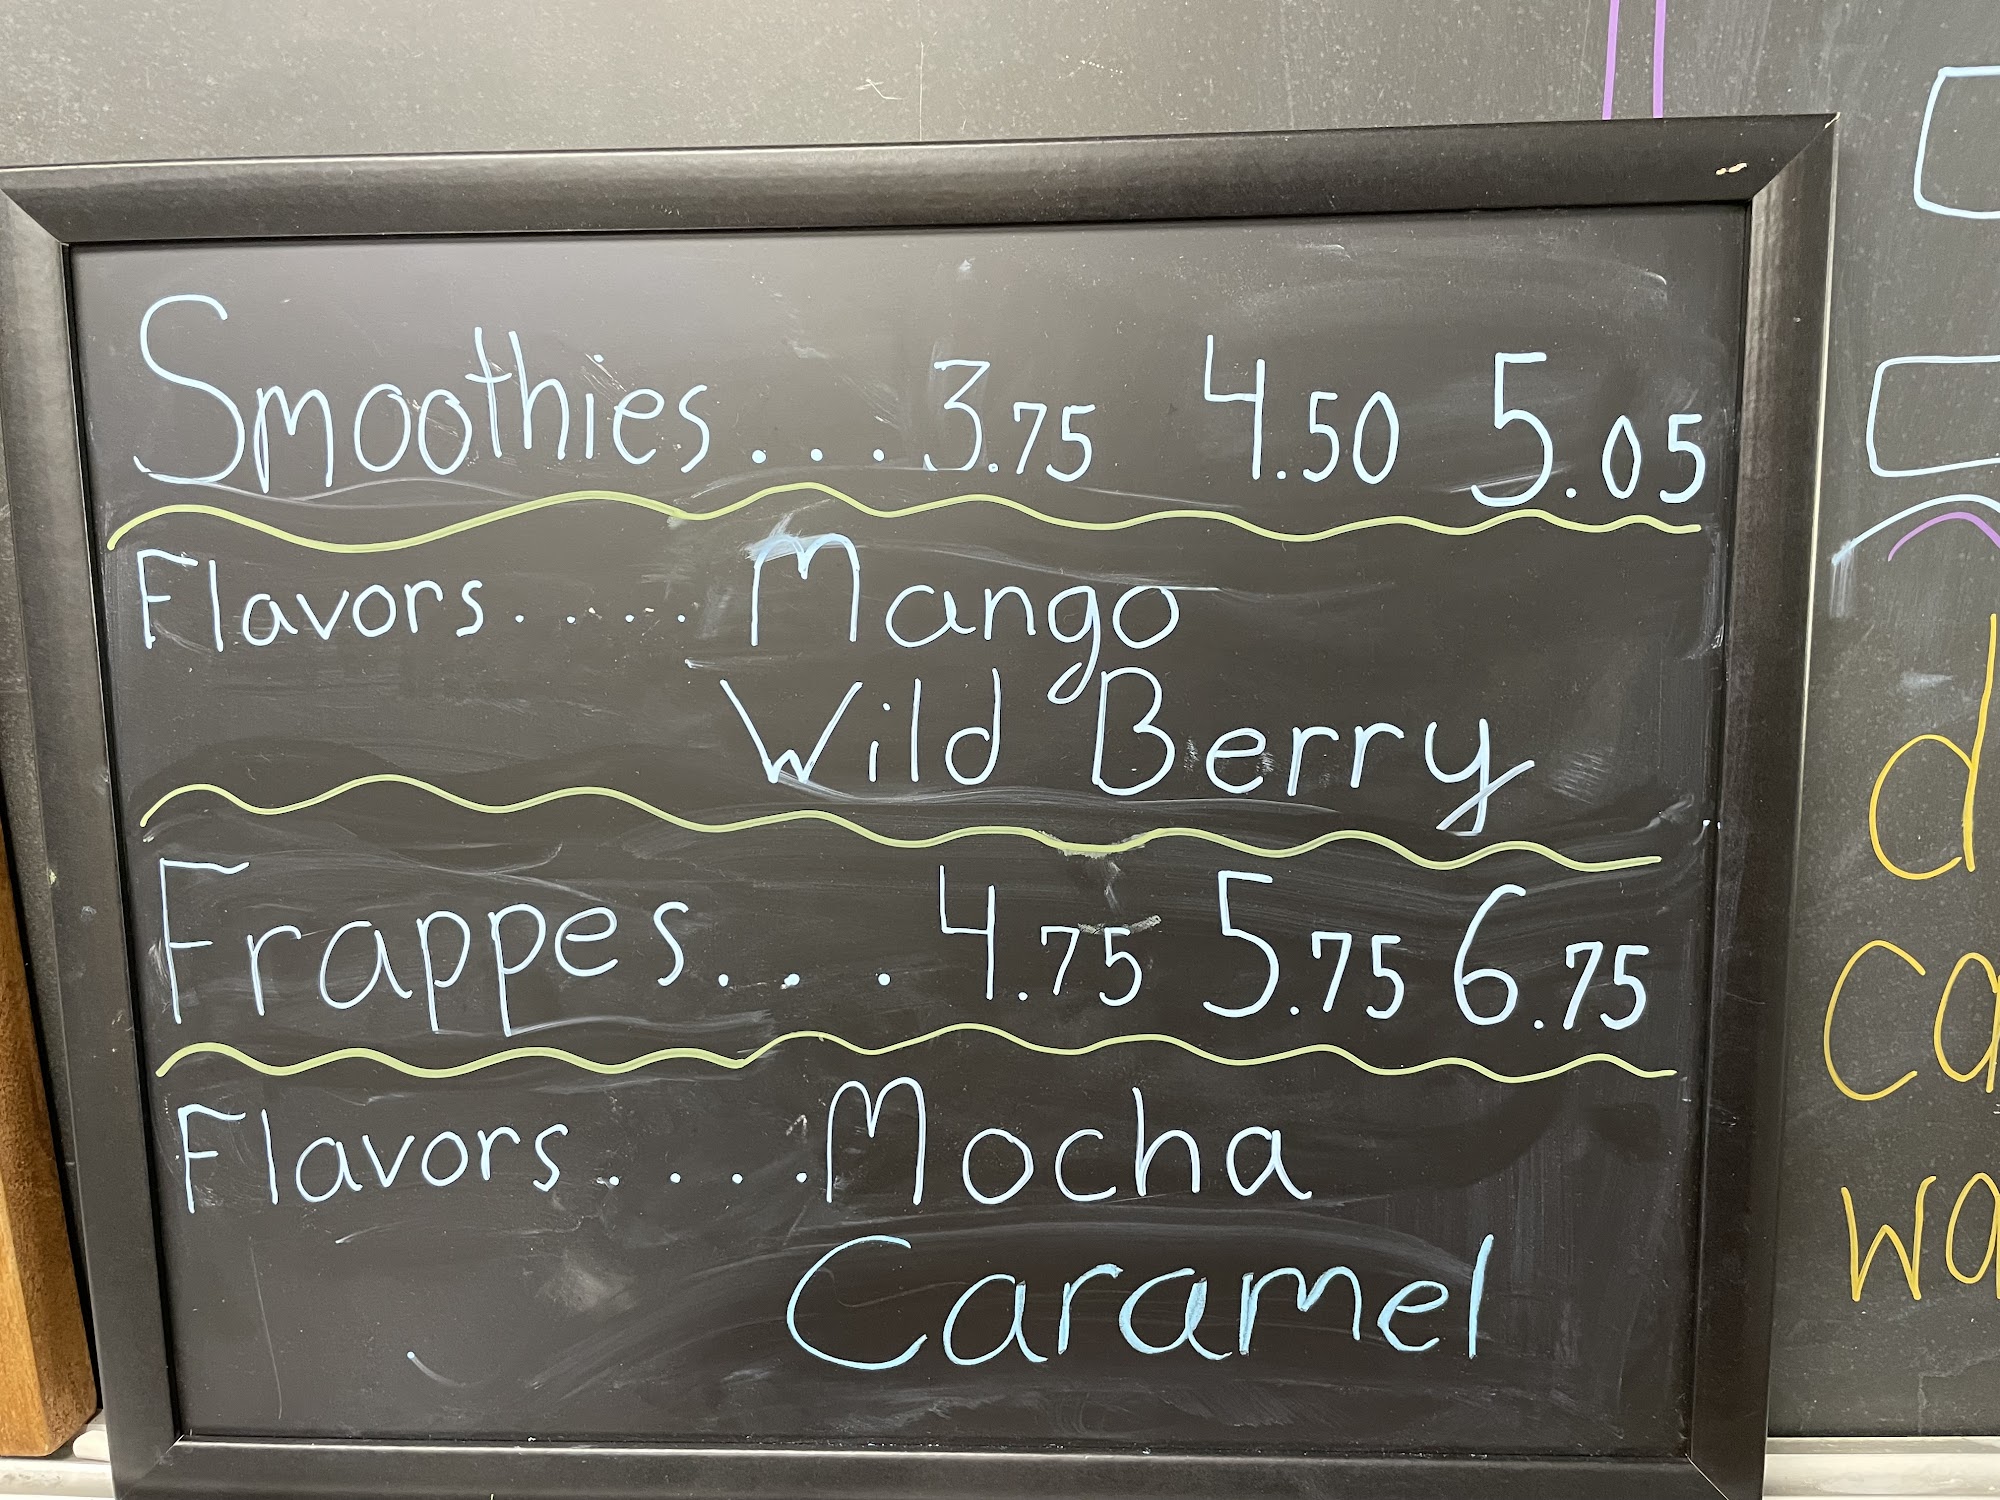 Smoothies...3.75 4.50 5.05
Flavors.....Mango
Wild Berry
Frappes... 4.75 5.75 6.75
Flavors.....Mocha
Caramel
d
ca
wa